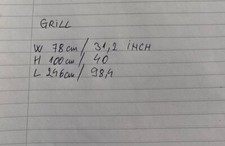 GRILL
W 78cm / 31,2 iNCH
H 100cm / 40
L 246cm / 98,4